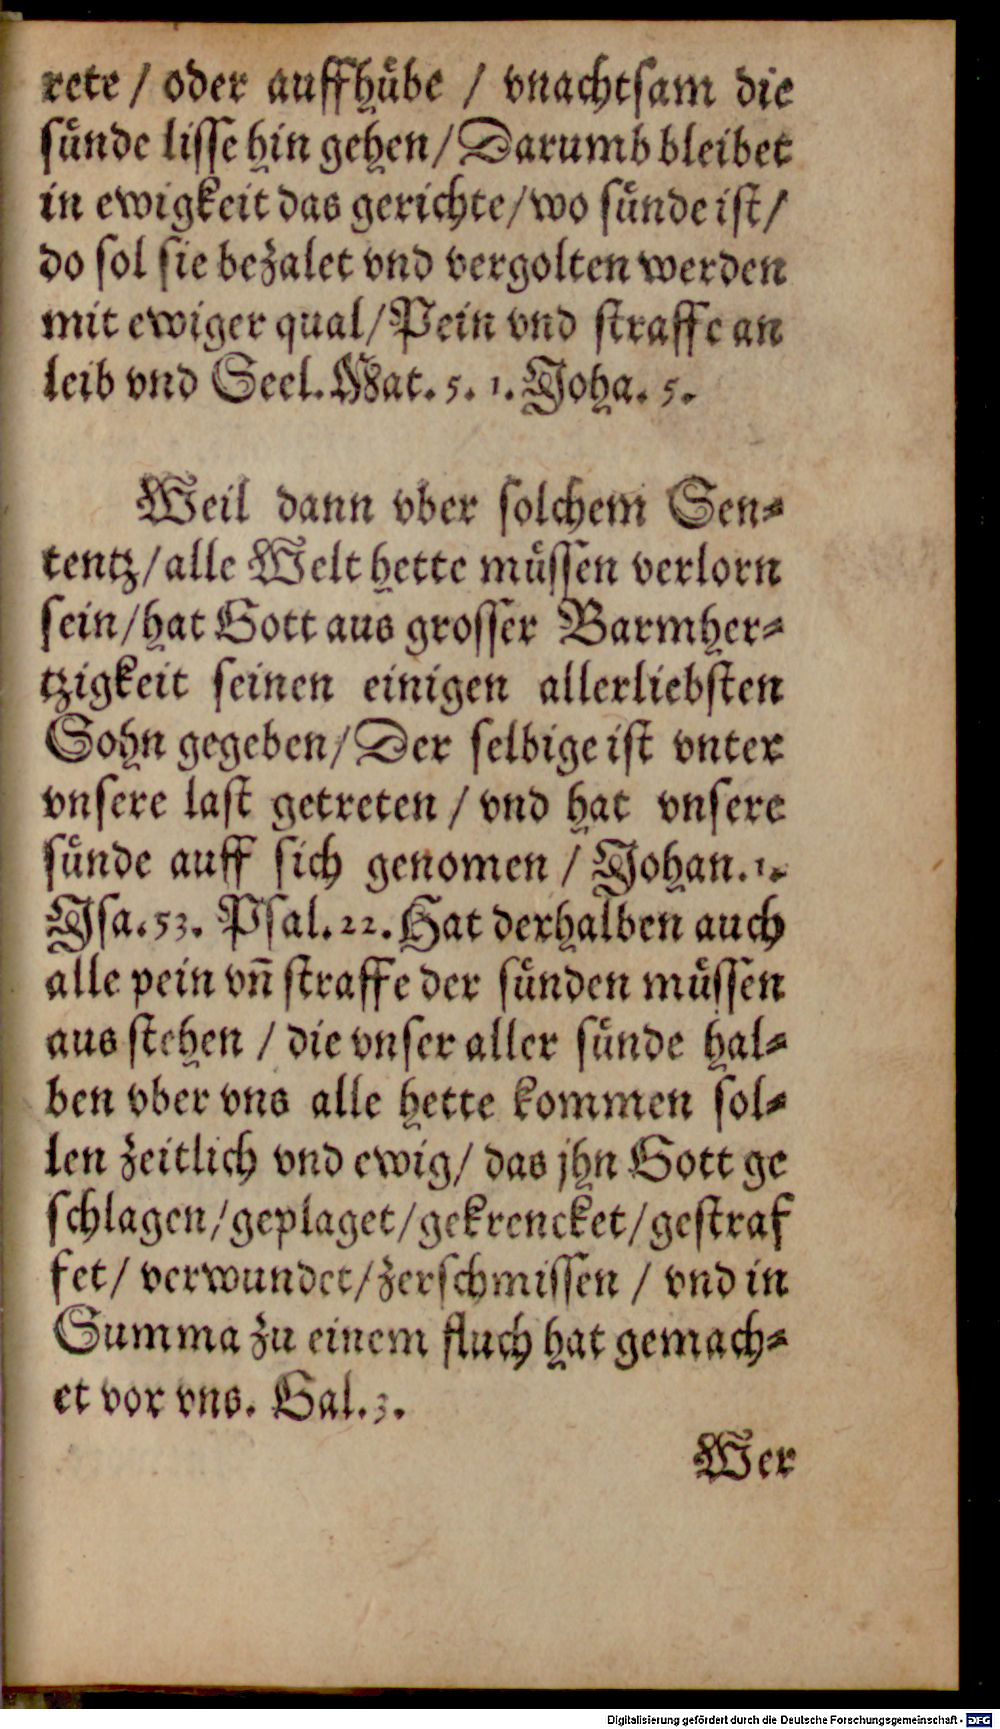 rete / oder auffhuͤbe / vnachtsam die
suͤnde lisse hin gehen / Darumb bleibet
in ewigkeit das gerichte / wo suͤnde ist /
do sol sie bezalet vnd vergolten werden
mit ewiger qual / Pein vnd straffe an
leib vnd Seel. Mat. 5. 1. Joha. 5.
Weil dann vber solchem Sen⸗
tentz / alle Welt hette muͤssen verlorn
sein / hat Gott aus grosser Barmher⸗
tzigkeit seinen einigen allerliebsten
Sohn gegeben / Der selbige ist vnter
vnsere last getreten / vnd hat vnsere
suͤnde auff sich genomen / Johan. 1.
Jsa. 53. Psal. 22. Hat derhalben auch
alle pein vn̄ straffe der suͤnden muͤssen
aus stehen / die vnser aller suͤnde hal⸗
ben vber vns alle hette kommen sol⸗
len zeitlich vnd ewig / das jhn Gott ge
schlagen / geplaget / gekrencket / gestraf
fet / verwundet / zerschmissen / vnd in
Summa zu einem fluch hat gemach⸗
et vor vns. Gal. 3.
Wer
Digitalisierung gefördert durch die Deutsche Forschungsgemeinschaft - DFG